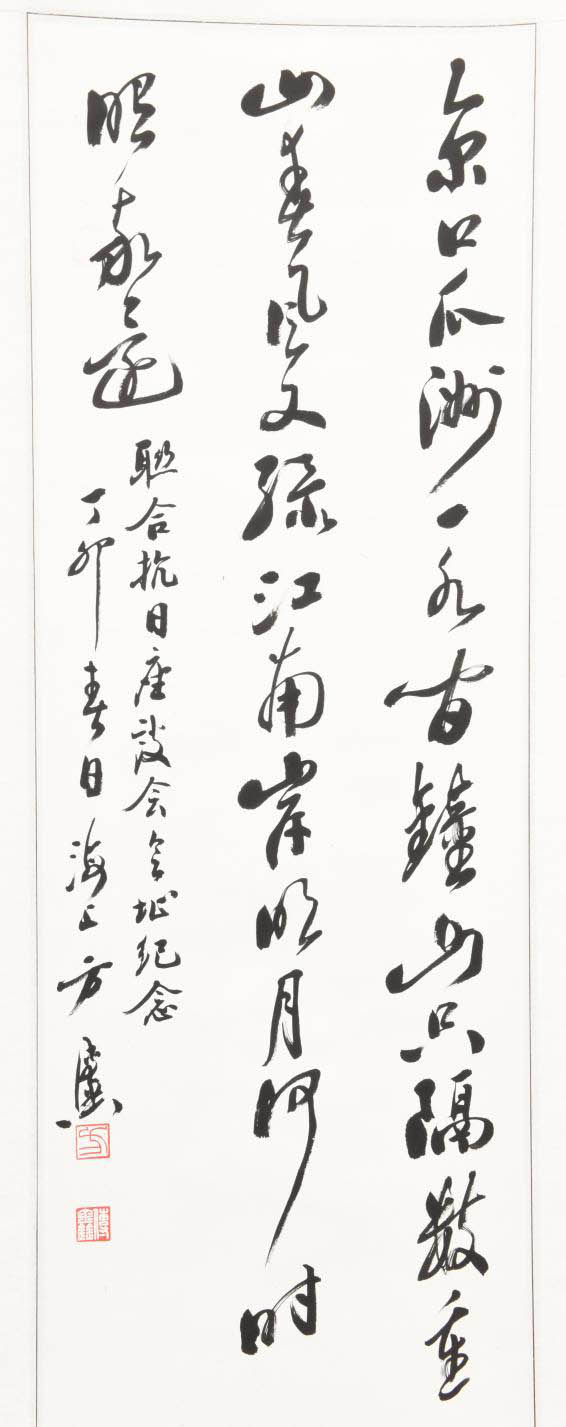 京口瓜洲一水间鐘山只隔数重
山春风又绿江南岸明月何时
照我还
聯合抗日座谈会会址纪念
丁卯春日海上方鑫
方
傳鑫